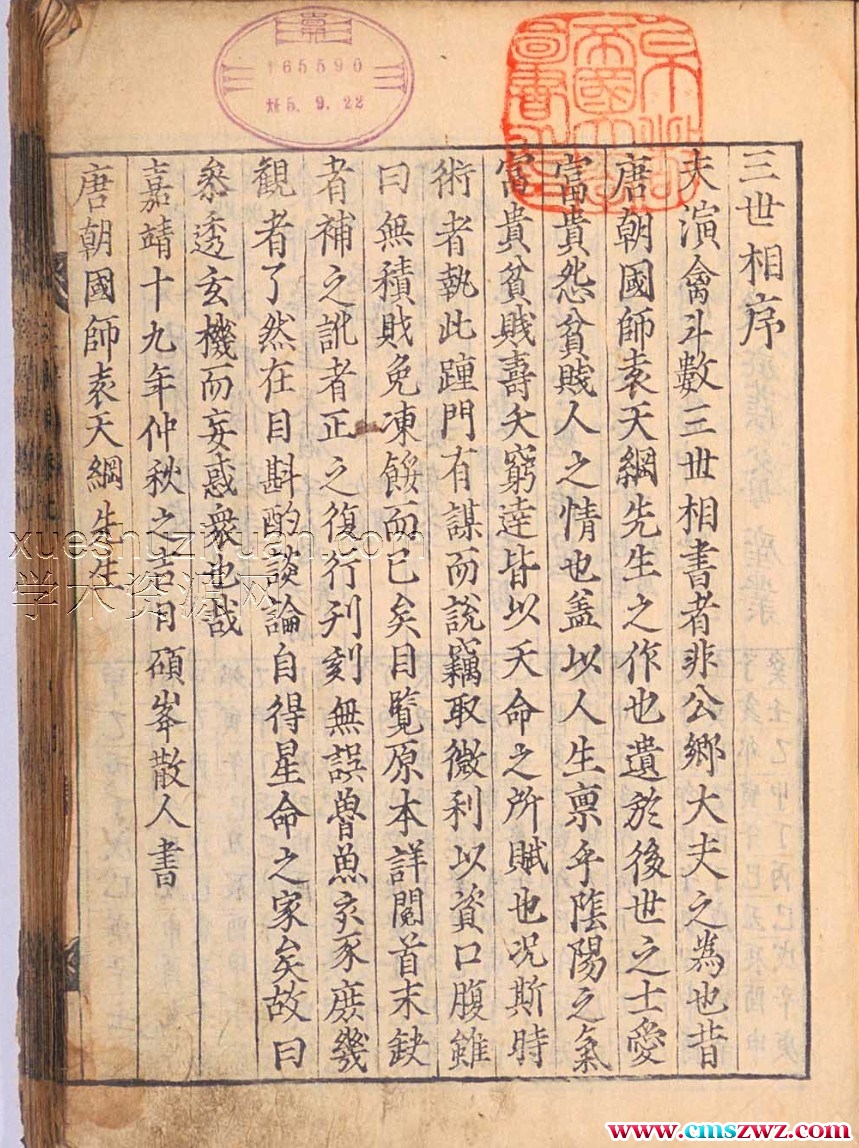 三世相序
夫演禽斗數三世相書者非公鄉大夫之為也昔
唐朝國師袁天綱先生之作也遺於後世之士愛
富貴怨貧賤人之情也盖以人生禀乎陰陽之氣
富貴貧賤壽夭窮逹皆以天命之所賦也况斯時
術者執此踵門有謀而說竊取微利以資口腹雖
曰無積財免凍餒而已矣目覽原本詳閱首末缺
者補之訛者正之復行刋刻無誤魯魚亥豕庶幾
観者了然在目斟酌談論自得星命之家矣故曰
叅透玄機而妄惑衆也哉
嘉靖十九年仲秋之吉日碩峯散人書
唐朝國師袁天綱先生
165590
5.9.22
xueshuziyuan.com
学术资源网
www.cmszwz.com